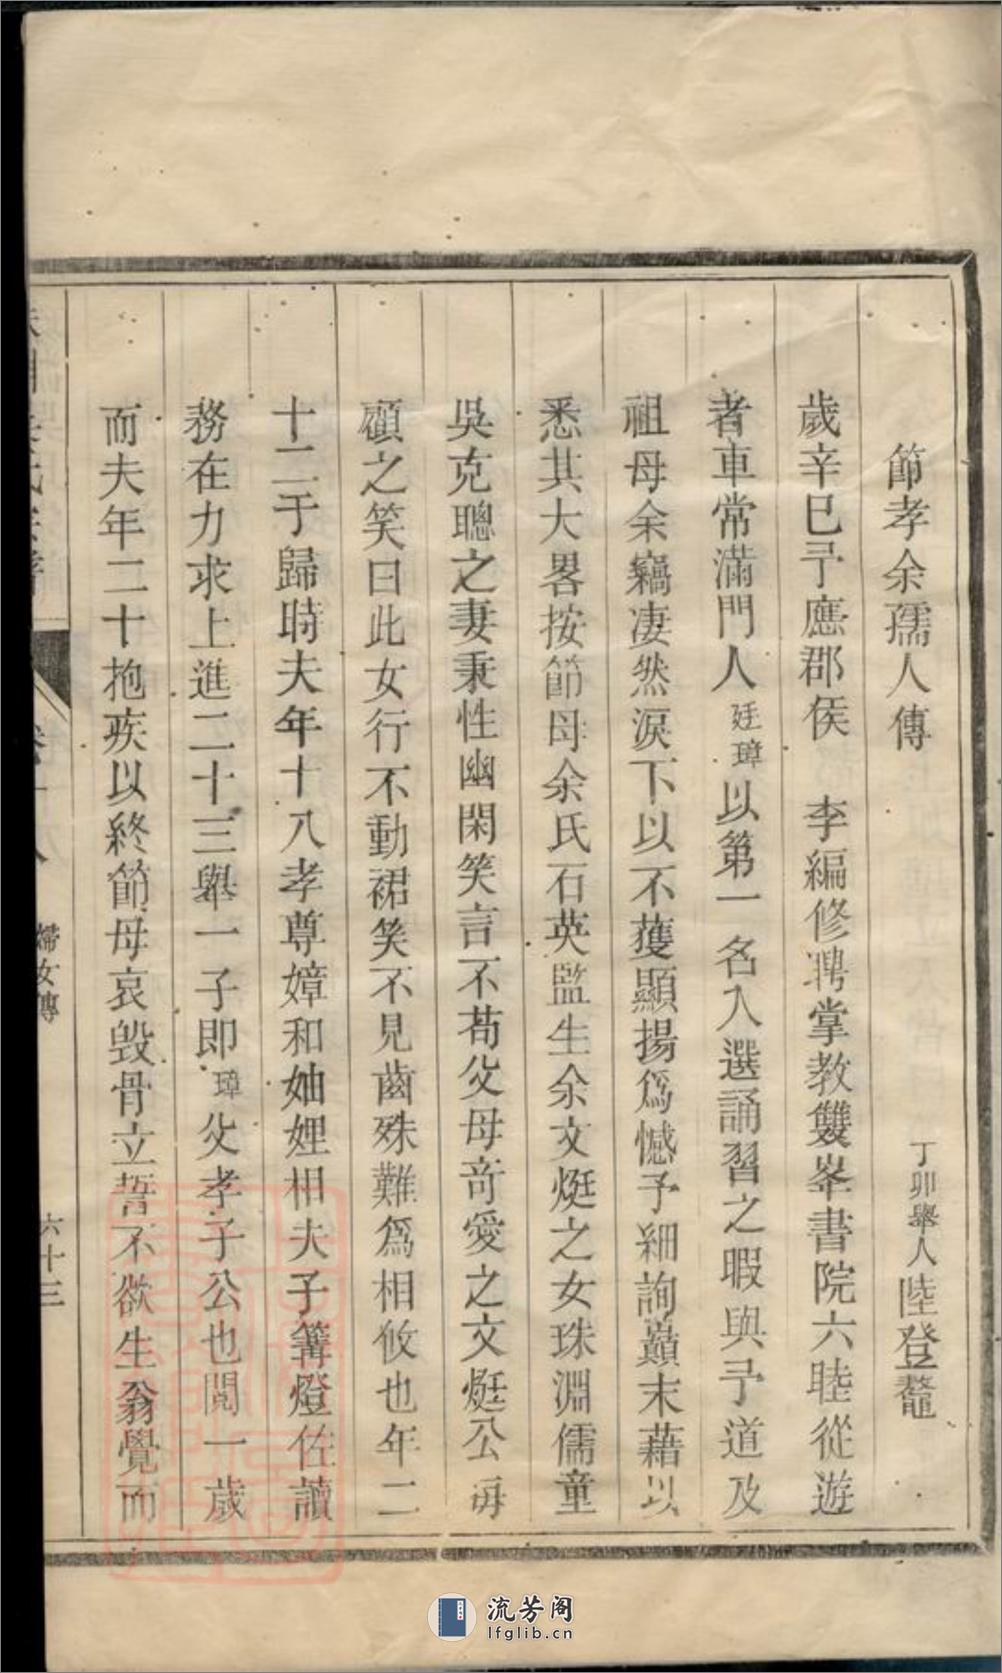 節孝余孺人傳　丁卯舉人陸登鼇
歲辛巳予應郡侯　李編修聘掌教雙峯書院六睦從遊
者車常滿門人廷璋以第一名入選誦習之暇與予道及
祖母余竊凄然淚下以不獲顯揚爲憾予細詢巔末藉以
悉其大畧按節母余氏石英監生余文烶之女珠淵儒童
吳克聰之妻秉性幽閑笑言不苟父母竒愛之文烶公每
顧之笑曰此女行不動裙笑不見齒殊難爲相攸也年二
十二于歸時夫年十八孝尊嫜和妯娌相夫子篝燈佐讀
務在力求上進二十三舉一子即璋父孝子公也閱一歲
而夫年二十抱疾以終節母哀毀骨立誓不欲生翁覺而
婦女傳
六十三
流芳阁
lfglib.cn